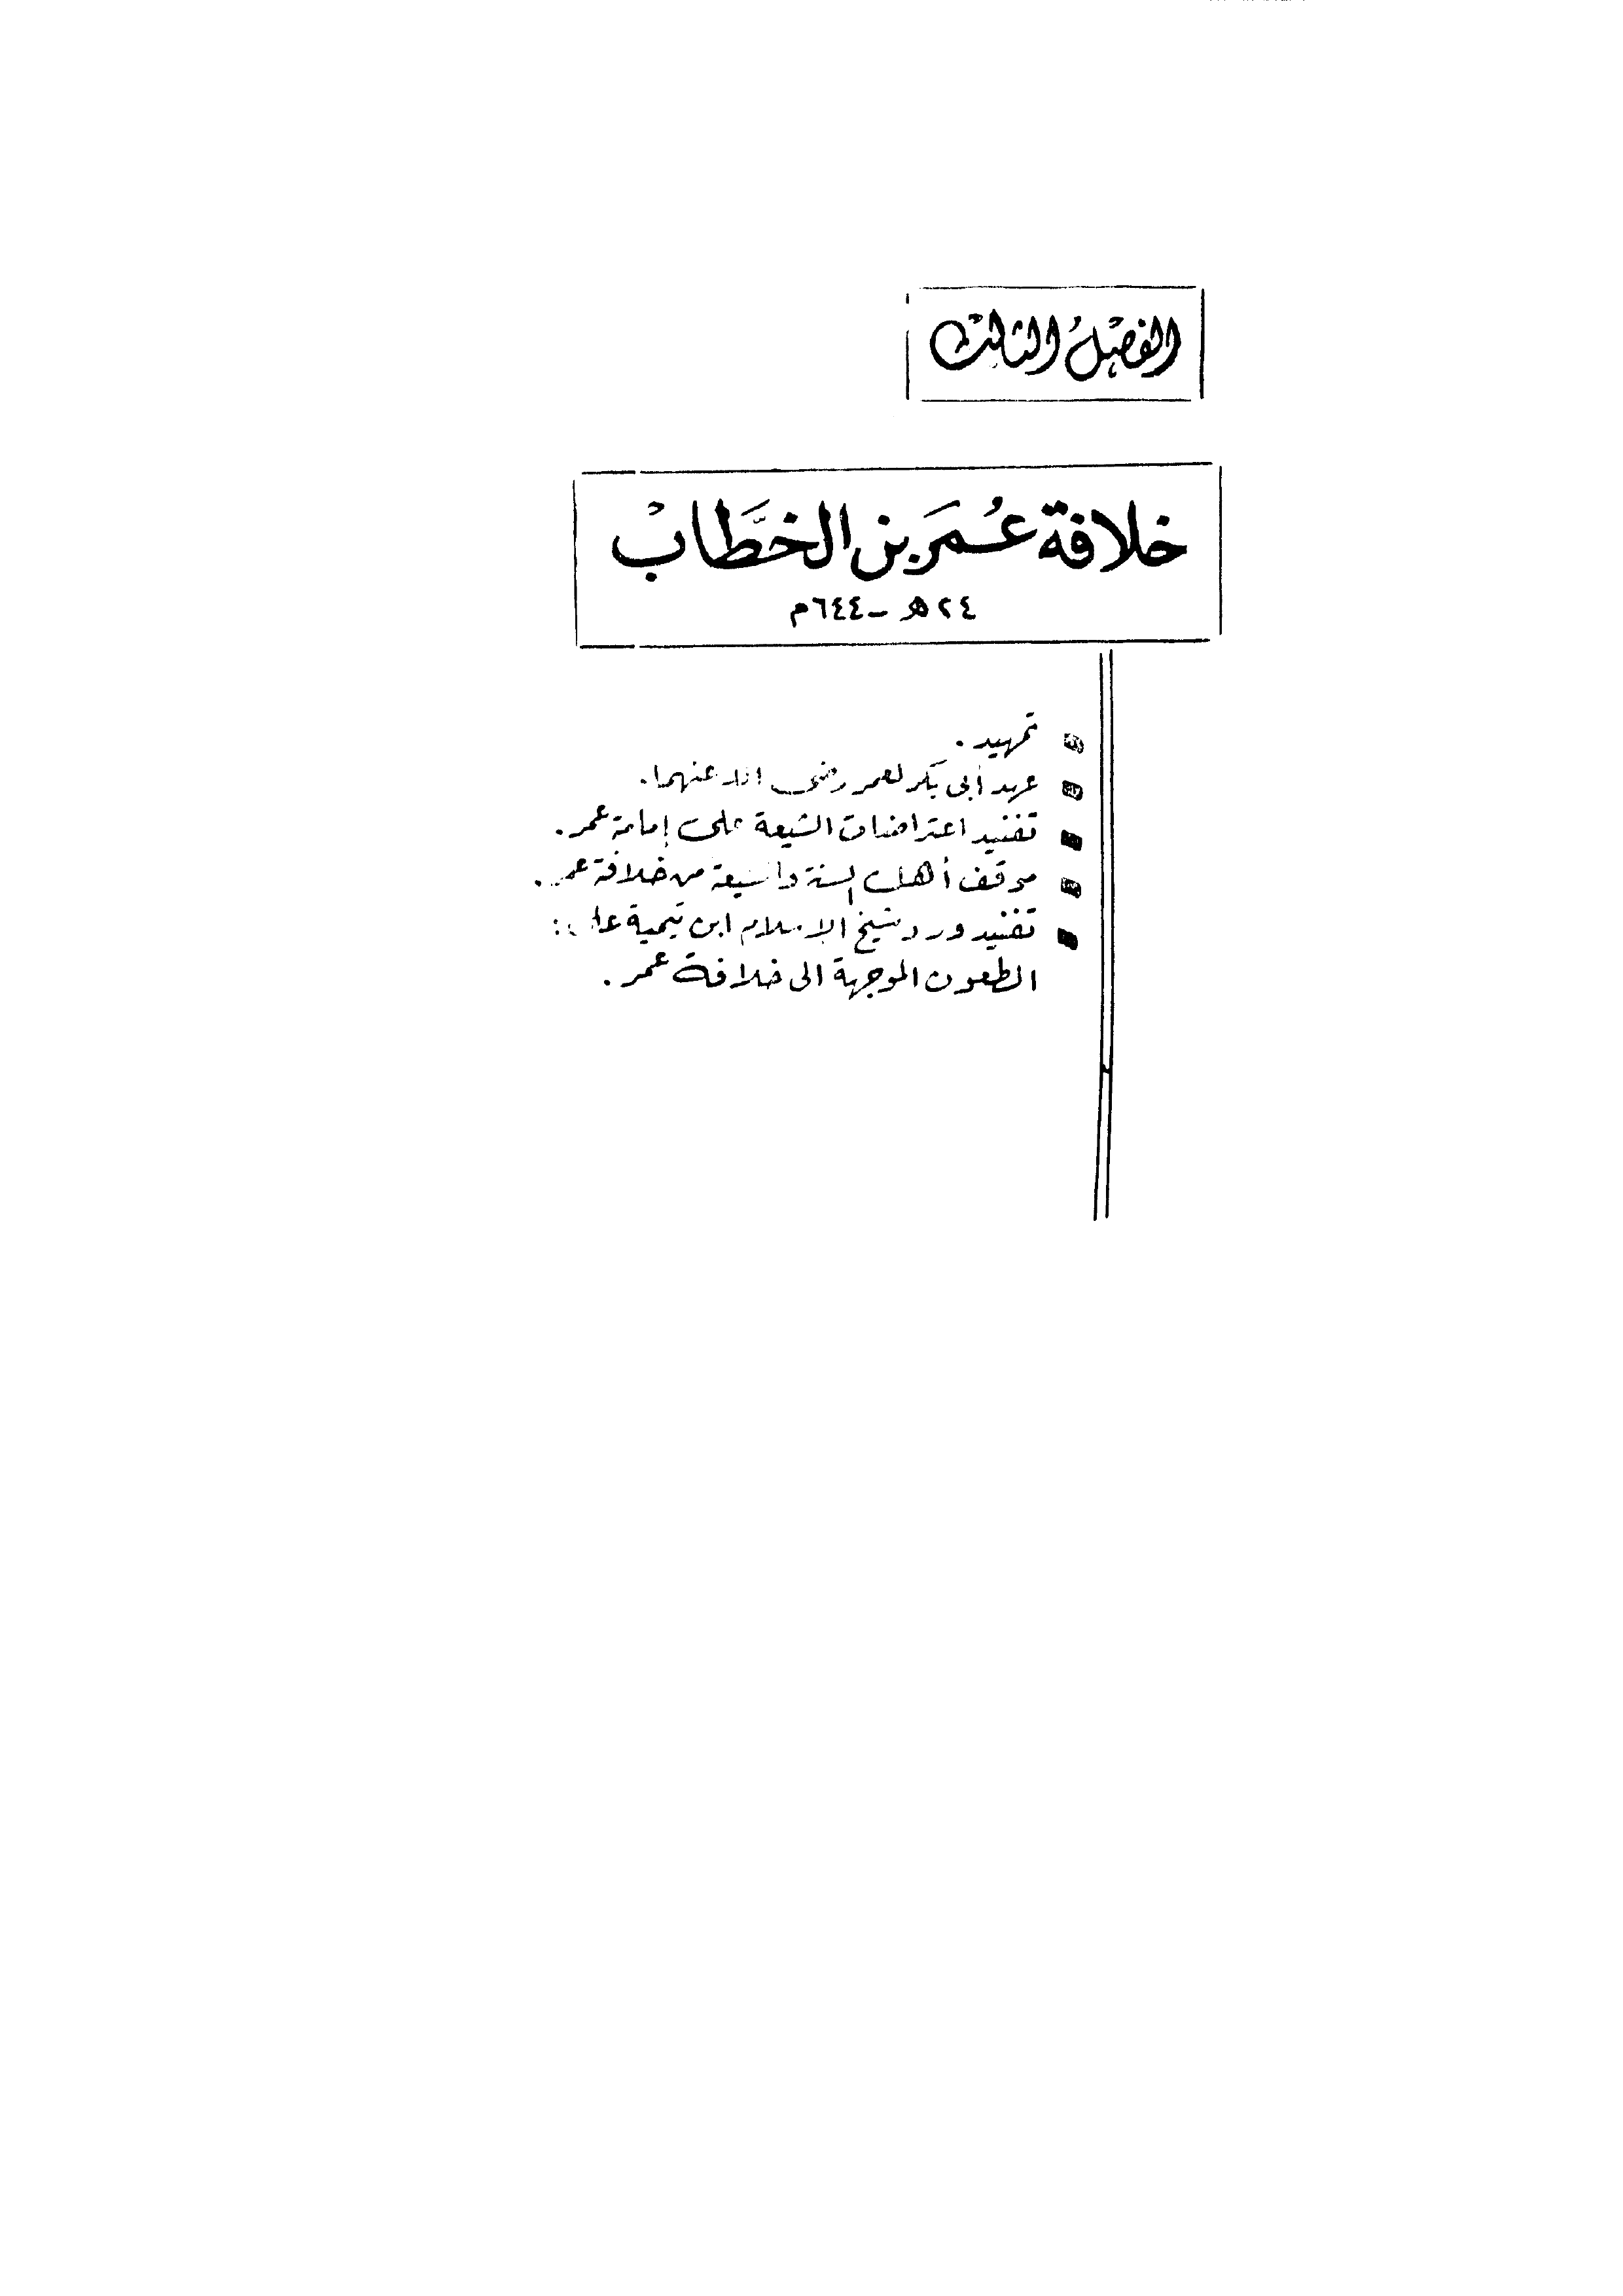 الفصل الثالث
خلافة عُمَر بن الخطَّاب
٢٤هـ - ٦٤٤م
تمهيد.
عهد أبى بكر لعمر رضى الله عنهما.
تفنيد اعتراضات الشيعة على إمامة عمر.
موقف أهل السنة والشيعة من خلافة عمر.
تفنيد ورد شيخ الإسلام ابن تيمية على:
الطعون الموجهة الى خلافة عمر.